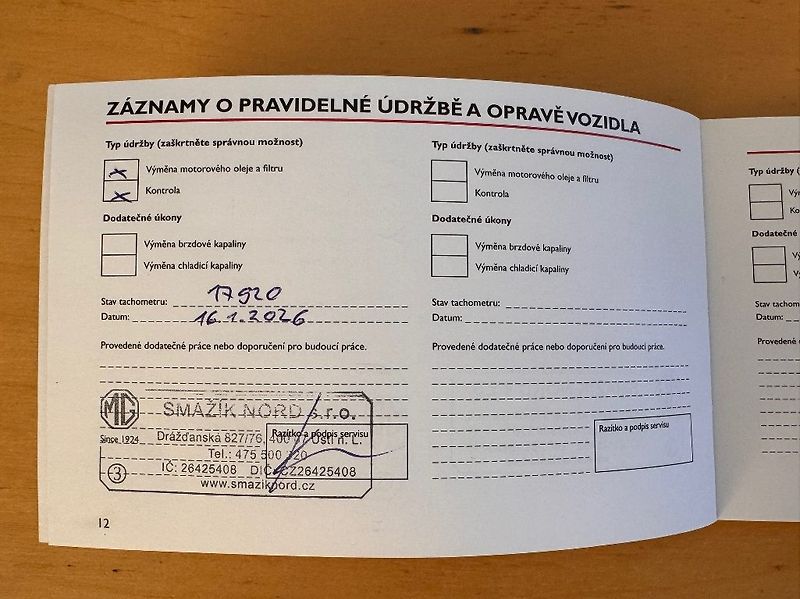 ZÁZNAMY O PRAVIDELNÉ ÚDRŽBĚ A OPRAVĚ VOZIDLA
Typ údržby (zaškrtněte správnou možnost)
x Výměna motorového oleje a filtru
x Kontrola
Dodatečné úkony
Výměna brzdové kapaliny
Výměna chladicí kapaliny
Stav tachometru: 17920
Datum: 16.1.2026
Provedené dodatečné práce nebo doporučení pro budoucí práce.
MG
Since 1924
3
SMAŽÍK NORD s.r.o.
Drážďanská 827/76, 400 07 Ústí n. L.
Tel.: 475 500 320
IČ: 26425408 DIČ: CZ26425408
www.smaziknord.cz
Razítko a podpis servisu
12
Typ údržby (zaškrtněte správnou možnost)
Výměna motorového oleje a filtru
Kontrola
Dodatečné úkony
Výměna brzdové kapaliny
Výměna chladicí kapaliny
Stav tachometru:
Datum:
Provedené dodatečné práce nebo doporučení pro budoucí práce.
Razítko a podpis servisu
Typ údržby (
Dodatečné
Stav tachom
Datum:
Provedené